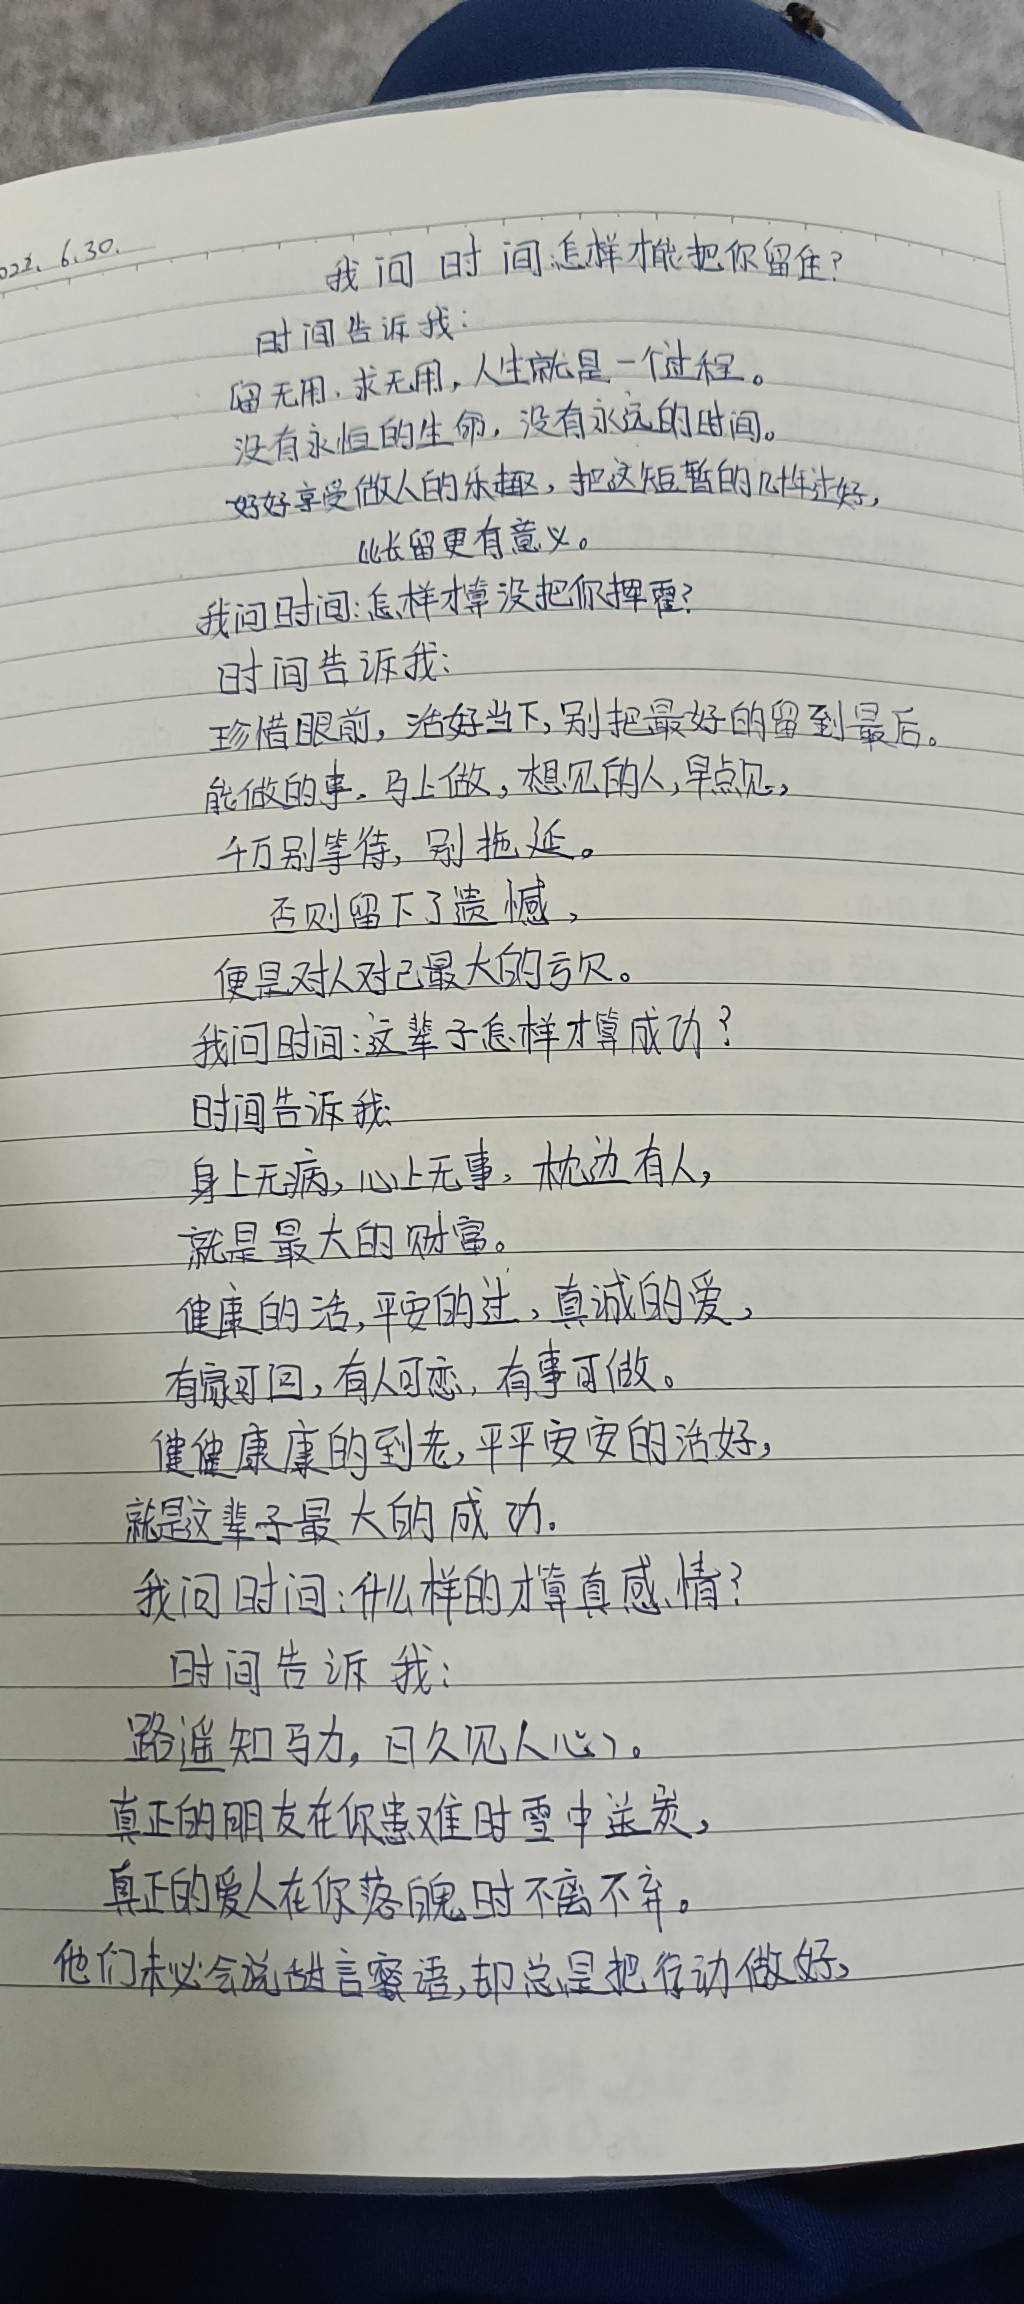 022. 6.30.
我问时间:怎样才能把你留住?
时间告诉我:
留无用,求无用,人生就是一个过程。
没有永恒的生命,没有永远的时间。
好好享受做人的乐趣,把这短暂的几十年过好,
比长留更有意义。
我问时间:怎样才算没把你挥霍?
时间告诉我:
珍惜眼前,活好当下,别把最好的留到最后。
能做的事,马上做,想见的人,早点见,
千万别等待,别拖延。
否则留下了遗憾,
便是对人对己最大的亏欠。
我问时间:这辈子怎样才算成功?
时间告诉我:
身上无病,心上无事,枕边有人,
就是最大的财富。
健康的活,平安的过,真诚的爱,
有家可回,有人可恋,有事可做。
健健康康的到老,平平安安的活好,
就是这辈子最大的成功.
我问时间:什么样的才算真感情?
时间告诉我:
路遥知马力,日久见人心。
真正的朋友在你患难时雪中送炭,
真正的爱人在你落魄时不离不弃。
他们未必会说甜言蜜语,却总是把行动做好,